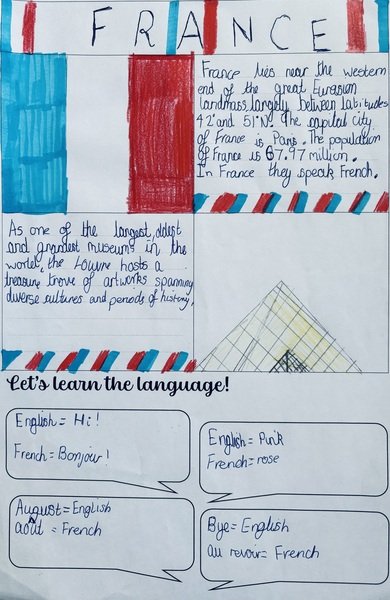 FRANCE
France lies near the western
end of the great Eurasian
landmass, largely between latitudes
42° and 51°N. The capital city
of France is Paris. The population
of France is 67.97 million.
In France they speak French.
As one of the largest, oldest
and grandest museums in the
world, the Louvre hosts a
treasure trove of artworks spanning
diverse cultures and periods of history.
Let's learn the language!
English = Hi!
French = Bonjour!
English = Pink
French = rose
August = English
août = French
Bye = English
au revoir = French